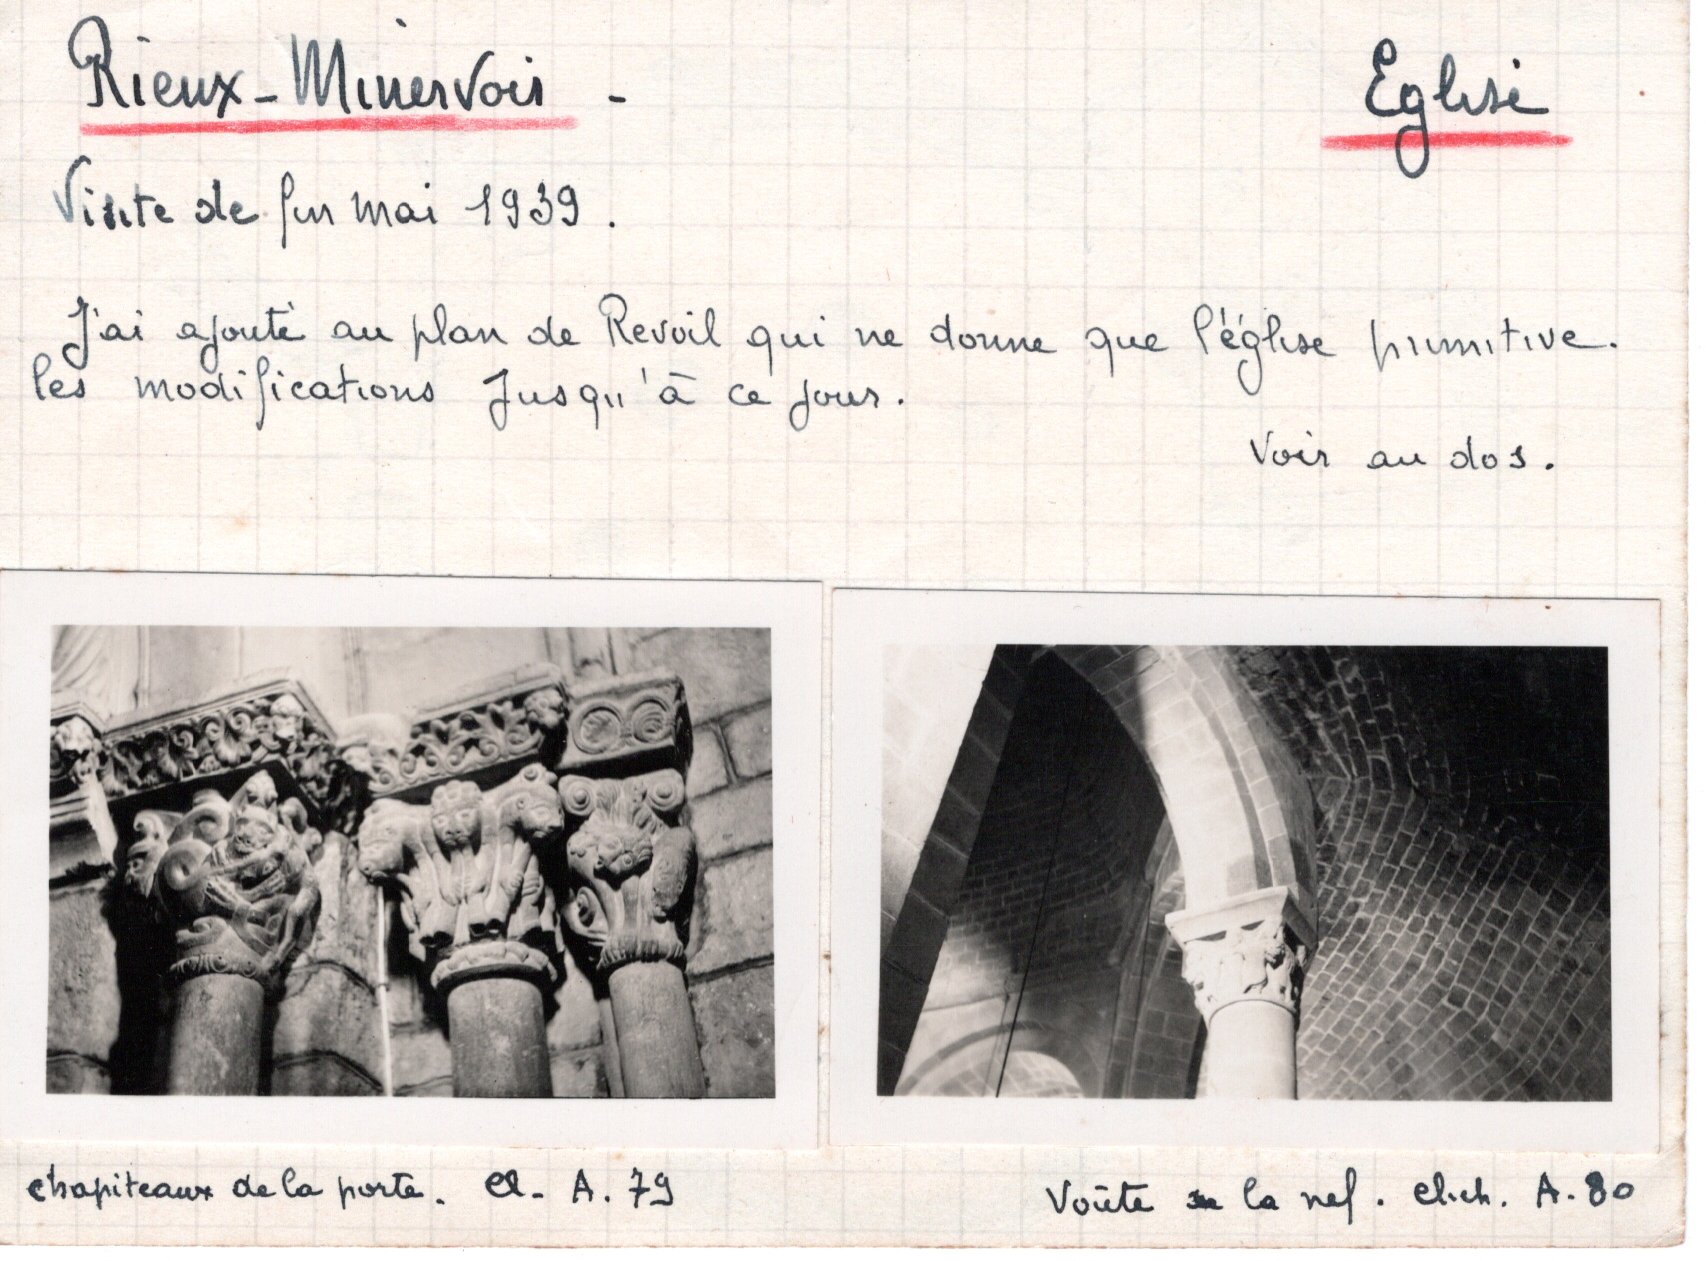 Rieux-Minervois - Eglise
Visite de fin mai 1939.
J'ai ajouté au plan de Revoil qui ne donne que l'église primitive.
les modifications jusqu'à ce jour.
Voir au dos.
chapiteaux de la porte. Cl. A. 79
Voûte de la nef. Clich. A. 80